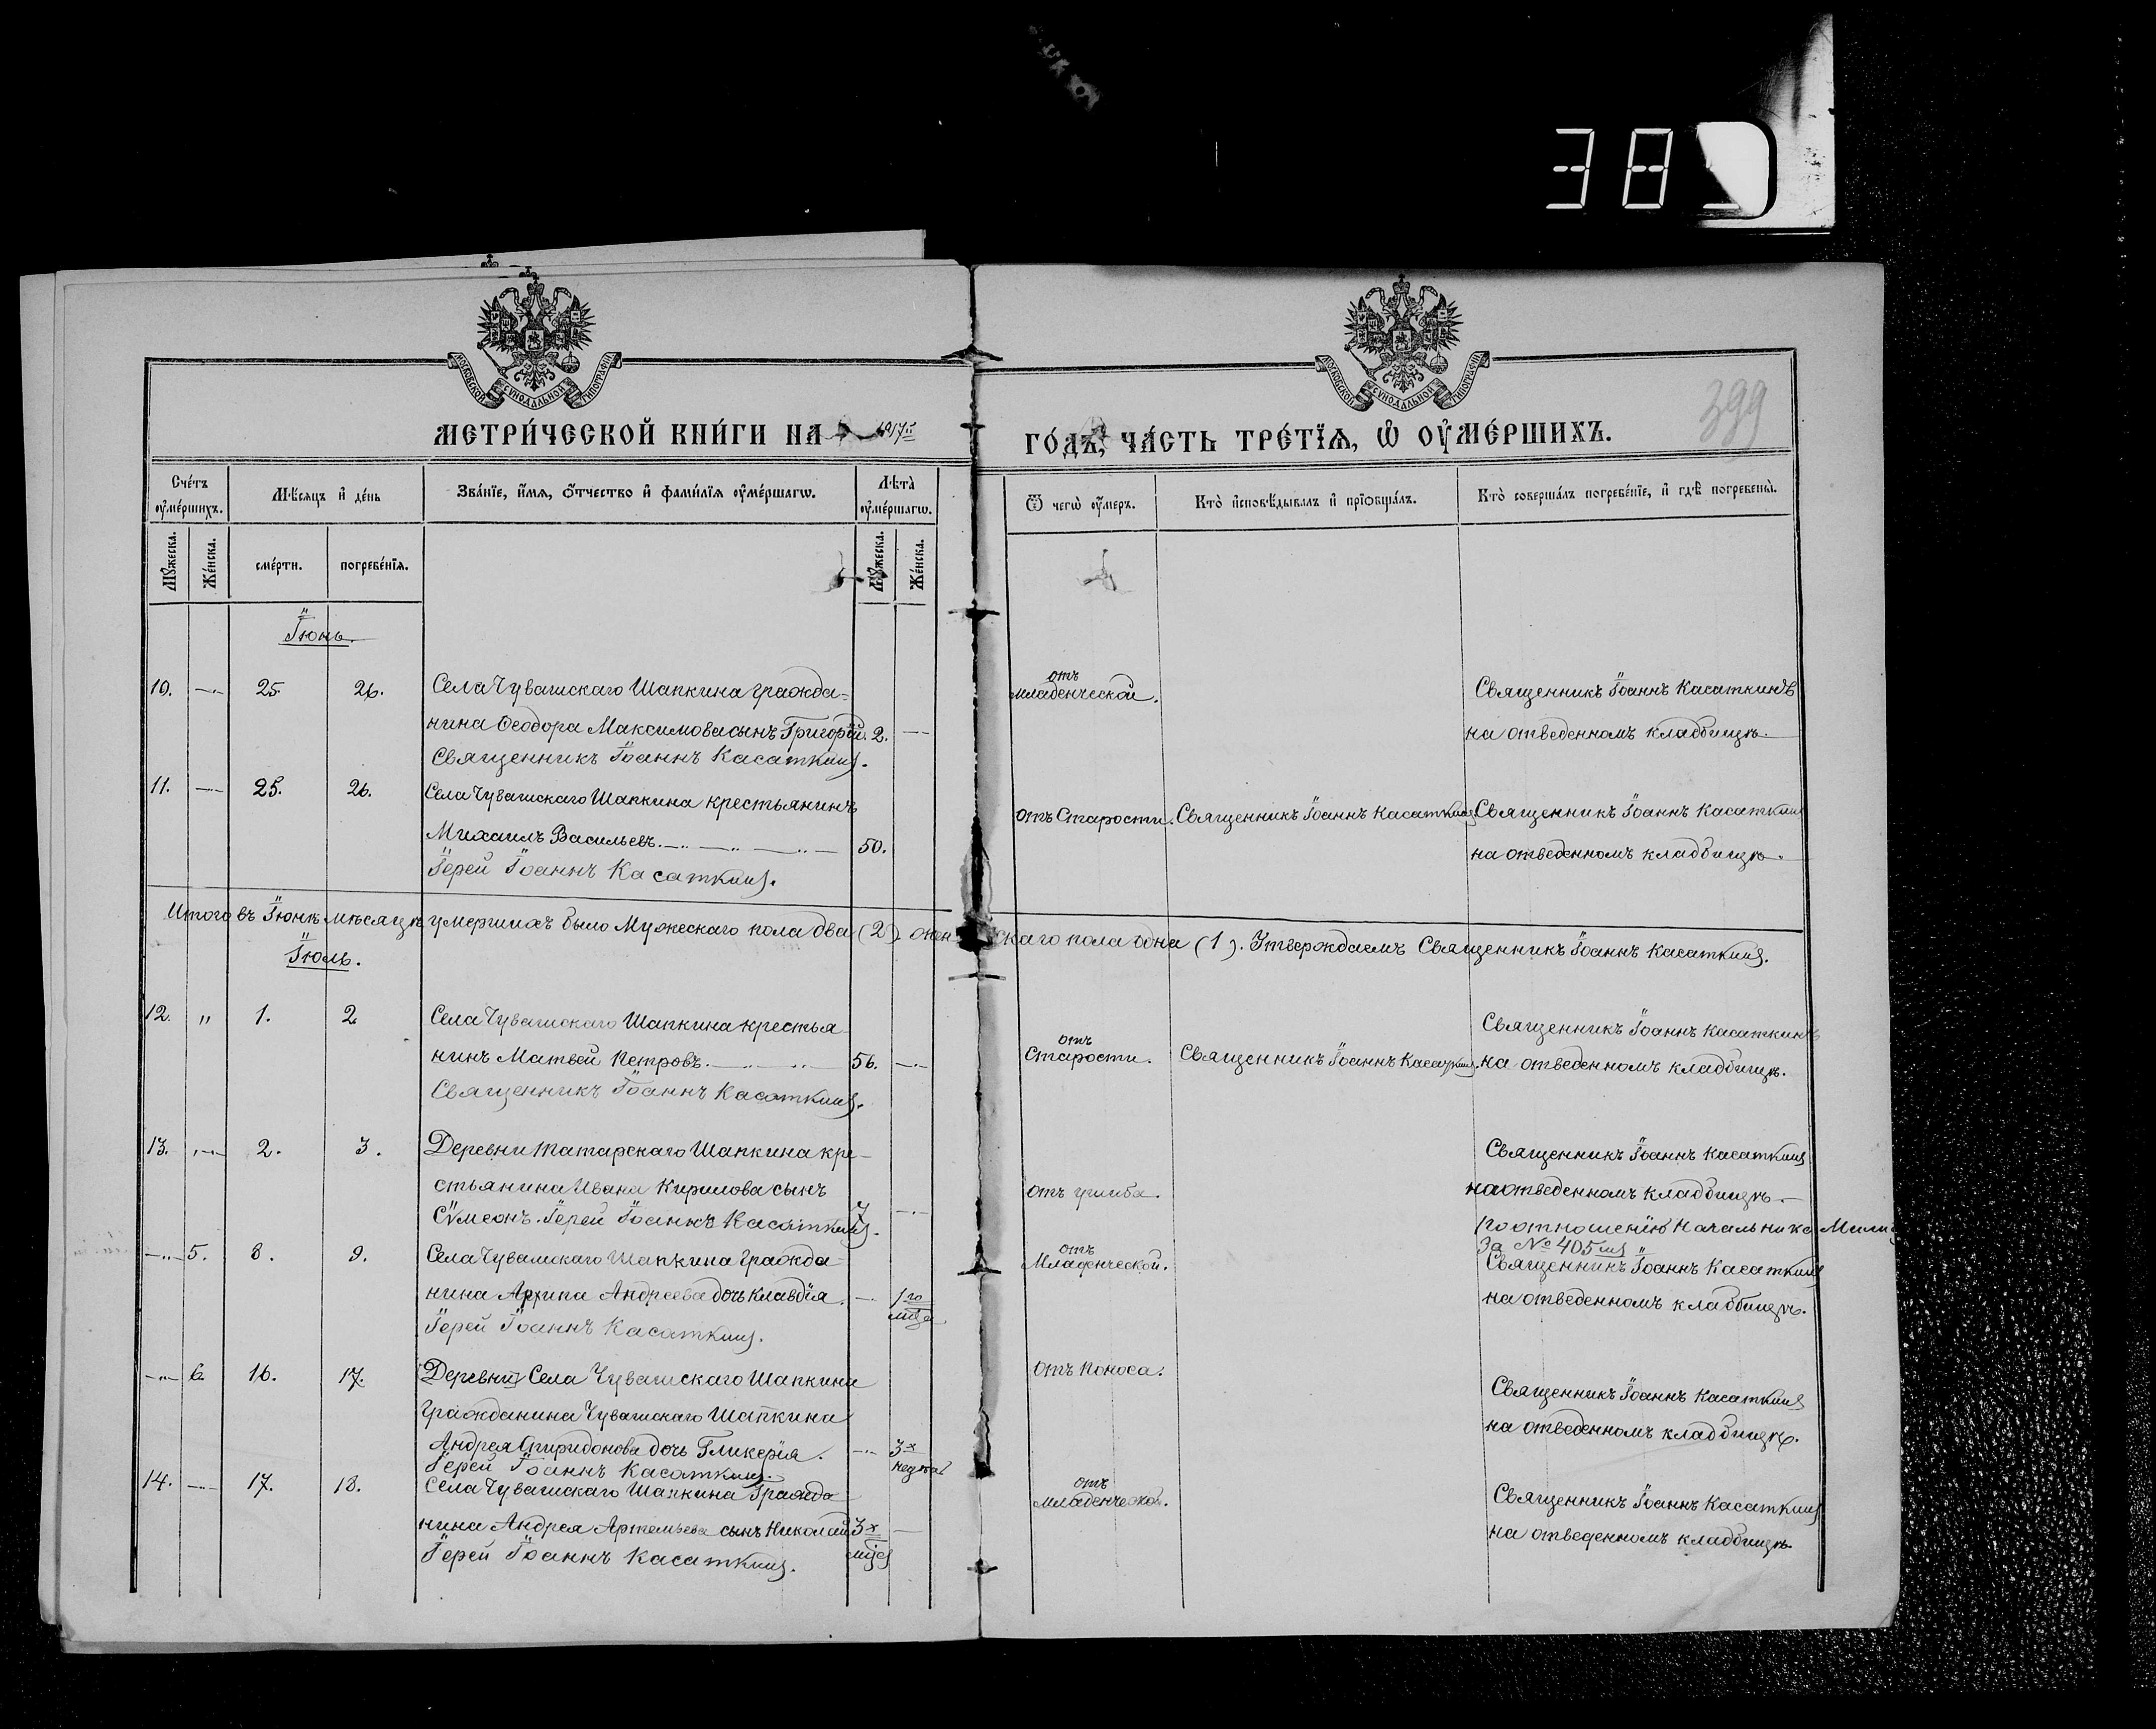 382
МОСКОВСКОЙ СѴНОДАЛЬНОЙ ТИПОГРАФІИ
МОСКОВСКОЙ СѴНОДАЛЬНОЙ ТИПОГРАФІИ
399
МЕТРИ́ЧЕСКОЙ КНИ́ГИ НА 1917й ГО́ДЪ, ЧА́СТЬ ТРЕ́ТЇѦ, Ѽ ОУ҆МЕ́РШИХЪ.
Сче́тъ оу҆ме́ршихъ.
Мѣ́сѧцъ и҆ де́нь
Зва́нїе, и҆́мѧ, ѻ҆́тчество и҆ фами́лїѧ оу҆ме́ршагѡ.
Лѣ́та̀ оу҆ме́ршагѡ.
Ѿ чегѡ̀ оу҆́меръ.
Кто̀ и҆сповѣ́дывалъ и҆ прїѡбща́лъ.
Кто̀ соверша́лъ погребе́нїе, и҆ гдѣ̀ погребены̀.
Мꙋ́жеска.
Же́нска.
сме́рти.
погребе́нїѧ.
Мꙋ́жеска.
Же́нска.
Іюнь.
10. —··— 25. 26. Села Чувашскаго Шапкина гражда-
нина Ѳеодора Максимова сынъ Григорій. 2. —··—
Священникъ Іоаннъ Касаткинъ.
отъ
младенческой.
Священникъ Іоаннъ Касаткинъ
на отведенномъ кладбищѣ.
11. —··— 25. 26. Села Чувашскаго Шапкина крестьянинъ
Михаилъ Васильевъ. —··—··—··— 50.
Іерей Іоаннъ Касаткинъ.
отъ Старости. Священникъ Іоаннъ Касаткинъ Священникъ Іоаннъ Касаткинъ
на отведенномъ кладбищѣ.
Итого въ Іюнѣ мѣсяцѣ умершихъ было Мужескаго пола два (2). женскаго пола одна (1). Утверждаемъ Священникъ Іоаннъ Касаткинъ.
Іюль.
12. " 1. 2. Села Чувашскаго Шапкина крестья-
нинъ Матвей Петровъ. —··—··— 56. —··—
Священникъ Іоаннъ Касаткинъ.
отъ
Старости. Священникъ Іоаннъ Касаткинъ.
Священникъ Іоаннъ Касаткинъ
на отведенномъ кладбищѣ.
13. —··— 2. 3. Деревни Татарскаго Шапкина кре-
стьянина Ивана Кирилова сынъ
Сѵмеонъ. Іерей Іоаннъ Касаткинъ. 7 —··—
отъ ушиба.
Священникъ Іоаннъ Касаткинъ
на отведенномъ кладбищѣ.
по отношенію Начальника
За № 405
—··— 5. 8. 9. Села Чувашскаго Шапкина гражда
нина Архипа Андреева дочь Клавдія. —··— 1го м-ца
Іерей Іоаннъ Касаткинъ.
отъ
Младенческой.
Священникъ Іоаннъ Касаткинъ
на отведенномъ кладбищѣ.
—··— 6. 16. 17. Деревни Села Чувашскаго Шапкина
гражданина Чувашскаго Шапкина
Андрея Спиридонова дочь Гликерія. —··— 3х недѣль
Іерей Іоаннъ Касаткинъ.
отъ поноса.
Священникъ Іоаннъ Касаткинъ
на отведенномъ кладбищѣ.
14. —··— 17. 18. Села Чувашскаго Шапкина Гражда
нина Андрея Артемьева сынъ Николай 3х м-цев —
Іерей Іоаннъ Касаткинъ.
отъ
младенческой.
Священникъ Іоаннъ Касаткинъ
на отведенномъ кладбищѣ.